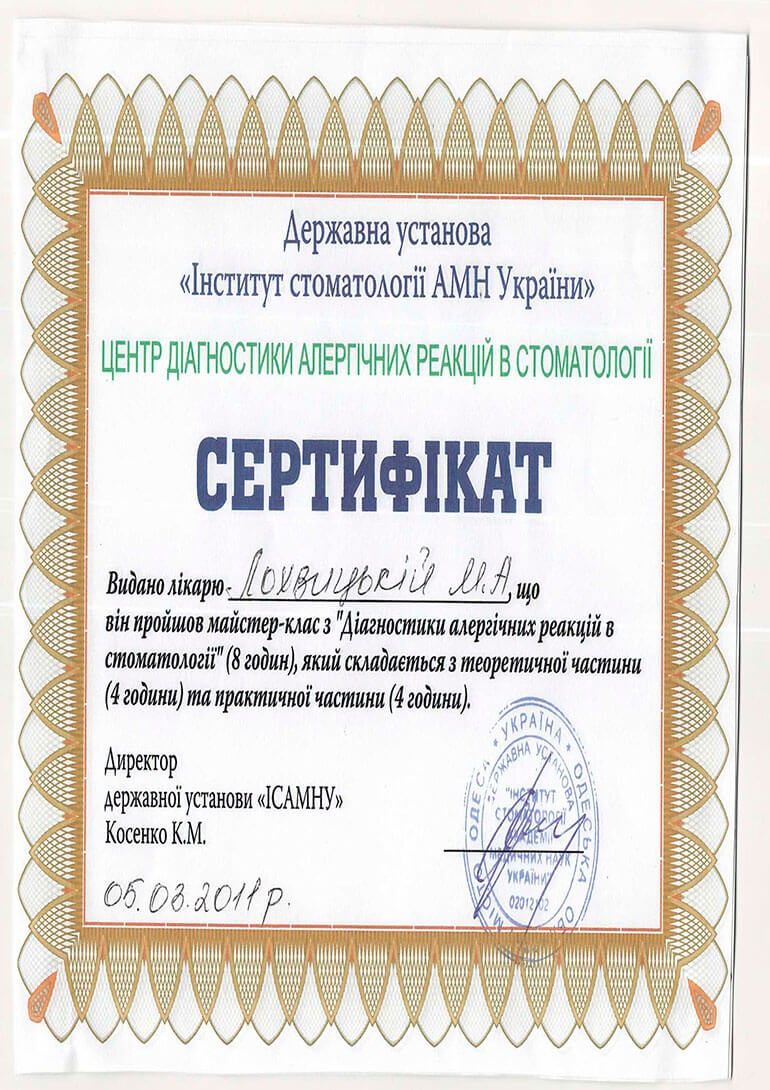 Державна установа
«Інститут стоматології АМН України»
ЦЕНТР ДІАГНОСТИКИ АЛЕРГІЧНИХ РЕАКЦІЙ В СТОМАТОЛОГІЇ
СЕРТИФІКАТ
Видано лікарю- Лохвицькій М.А, що
він пройшов майстер-клас з "Діагностики алергічних реакцій в
стоматології" (8 годин), який складається з теоретичної частини
(4 години) та практичної частини (4 години).
Директор
державної установи «ІСАМНУ»
Косенко К.М.
05.03.2011 р.
* УКРАЇНА * ОДЕСЬКА ОБ
ОДЕСА
ДЕРЖАВНА УСТАНОВА
"ІНСТИТУТ
СТОМАТОЛОГІЇ
АКАДЕМІЇ
МЕДИЧНИХ НАУК
УКРАЇНИ"